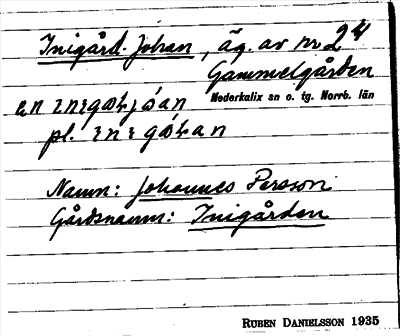 Inigård Johan, äg. av nr 24
Gammelgården
Nederkalix sn o. tg. Norrb. län
pl.
Namn: Johannes Persson
Gårdsnamn: Inigården
RUBEN DANIELSSON 1935